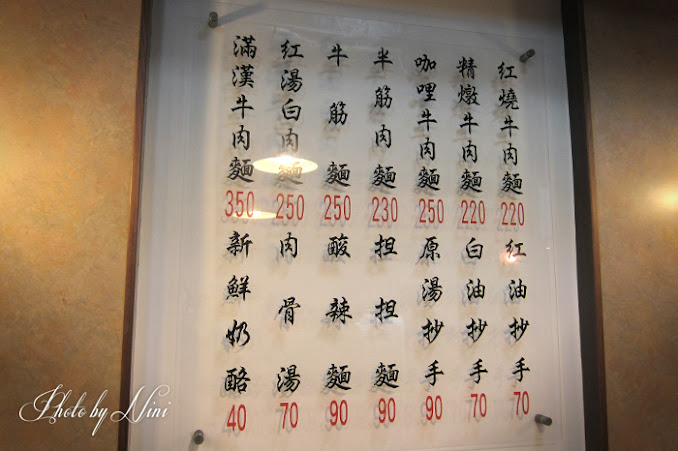 紅燒牛肉麵
220
精燉牛肉麵
220
咖哩牛肉麵
250
半筋肉麵
230
牛筋麵
250
紅湯白肉麵
250
滿漢牛肉麵
350
紅油抄手
70
白油抄手
70
原湯抄手
90
担担麵
90
酸辣麵
90
肉骨湯
70
新鮮奶酪
40
Photo by Nini